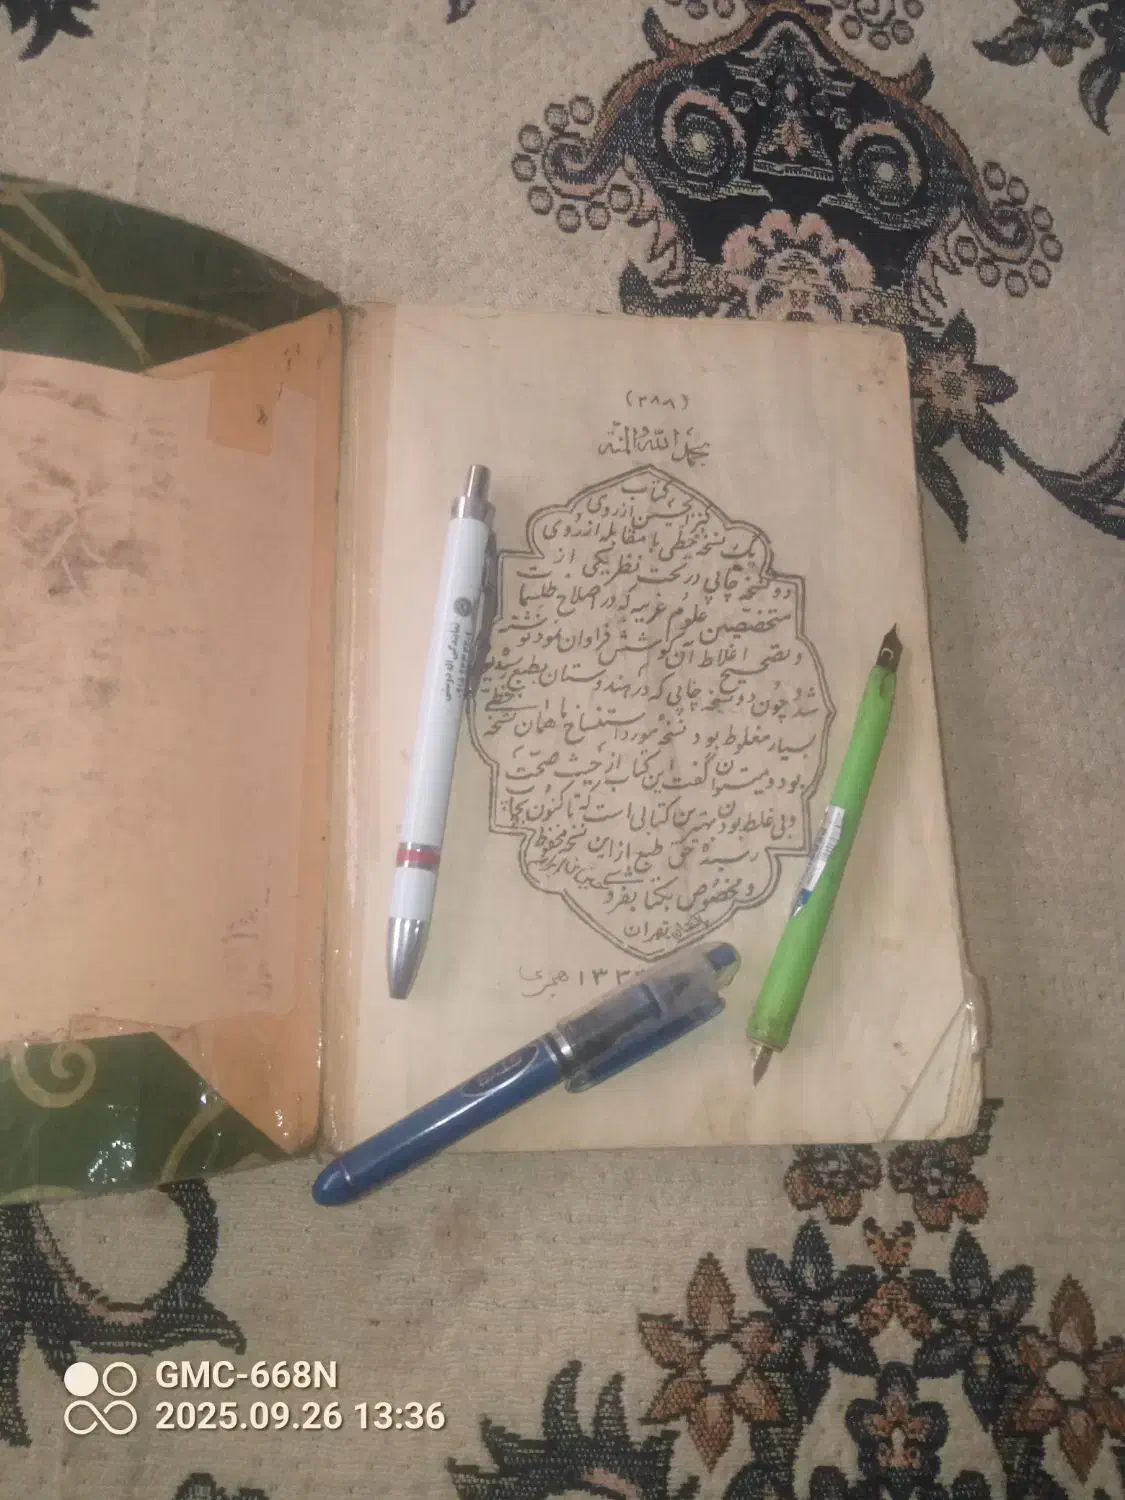 (۲۸۸)
بحمد الله والمنة
کتاب
کنز الحسین از روی
یک نسخه خطی با مقابله از روی
دو نسخه چاپی در تحت نظر یکی از
متخصصین علوم غریبه که در اصلاح طلسمات
و تصحیح اغلاط آن کوشش فراوان نمود نوشته
شد و چون دو نسخه چاپی که در هندوستان بطبع رسیده بود
بسیار مغلوط بود نسخه مورد استنساخ با همان نسخه خطی
بود و میتوان گفت این کتاب از حیث صحت
و بی غلط بودن بهترین کتابی است که تا کنون بچاپ
رسیده حق طبع از این نسخه محفوظ
و مخصوص بکتابفروشی
تهران
۱۳۳ هجری
نمایندگی
GMC-668N
2025.09.26 13:36